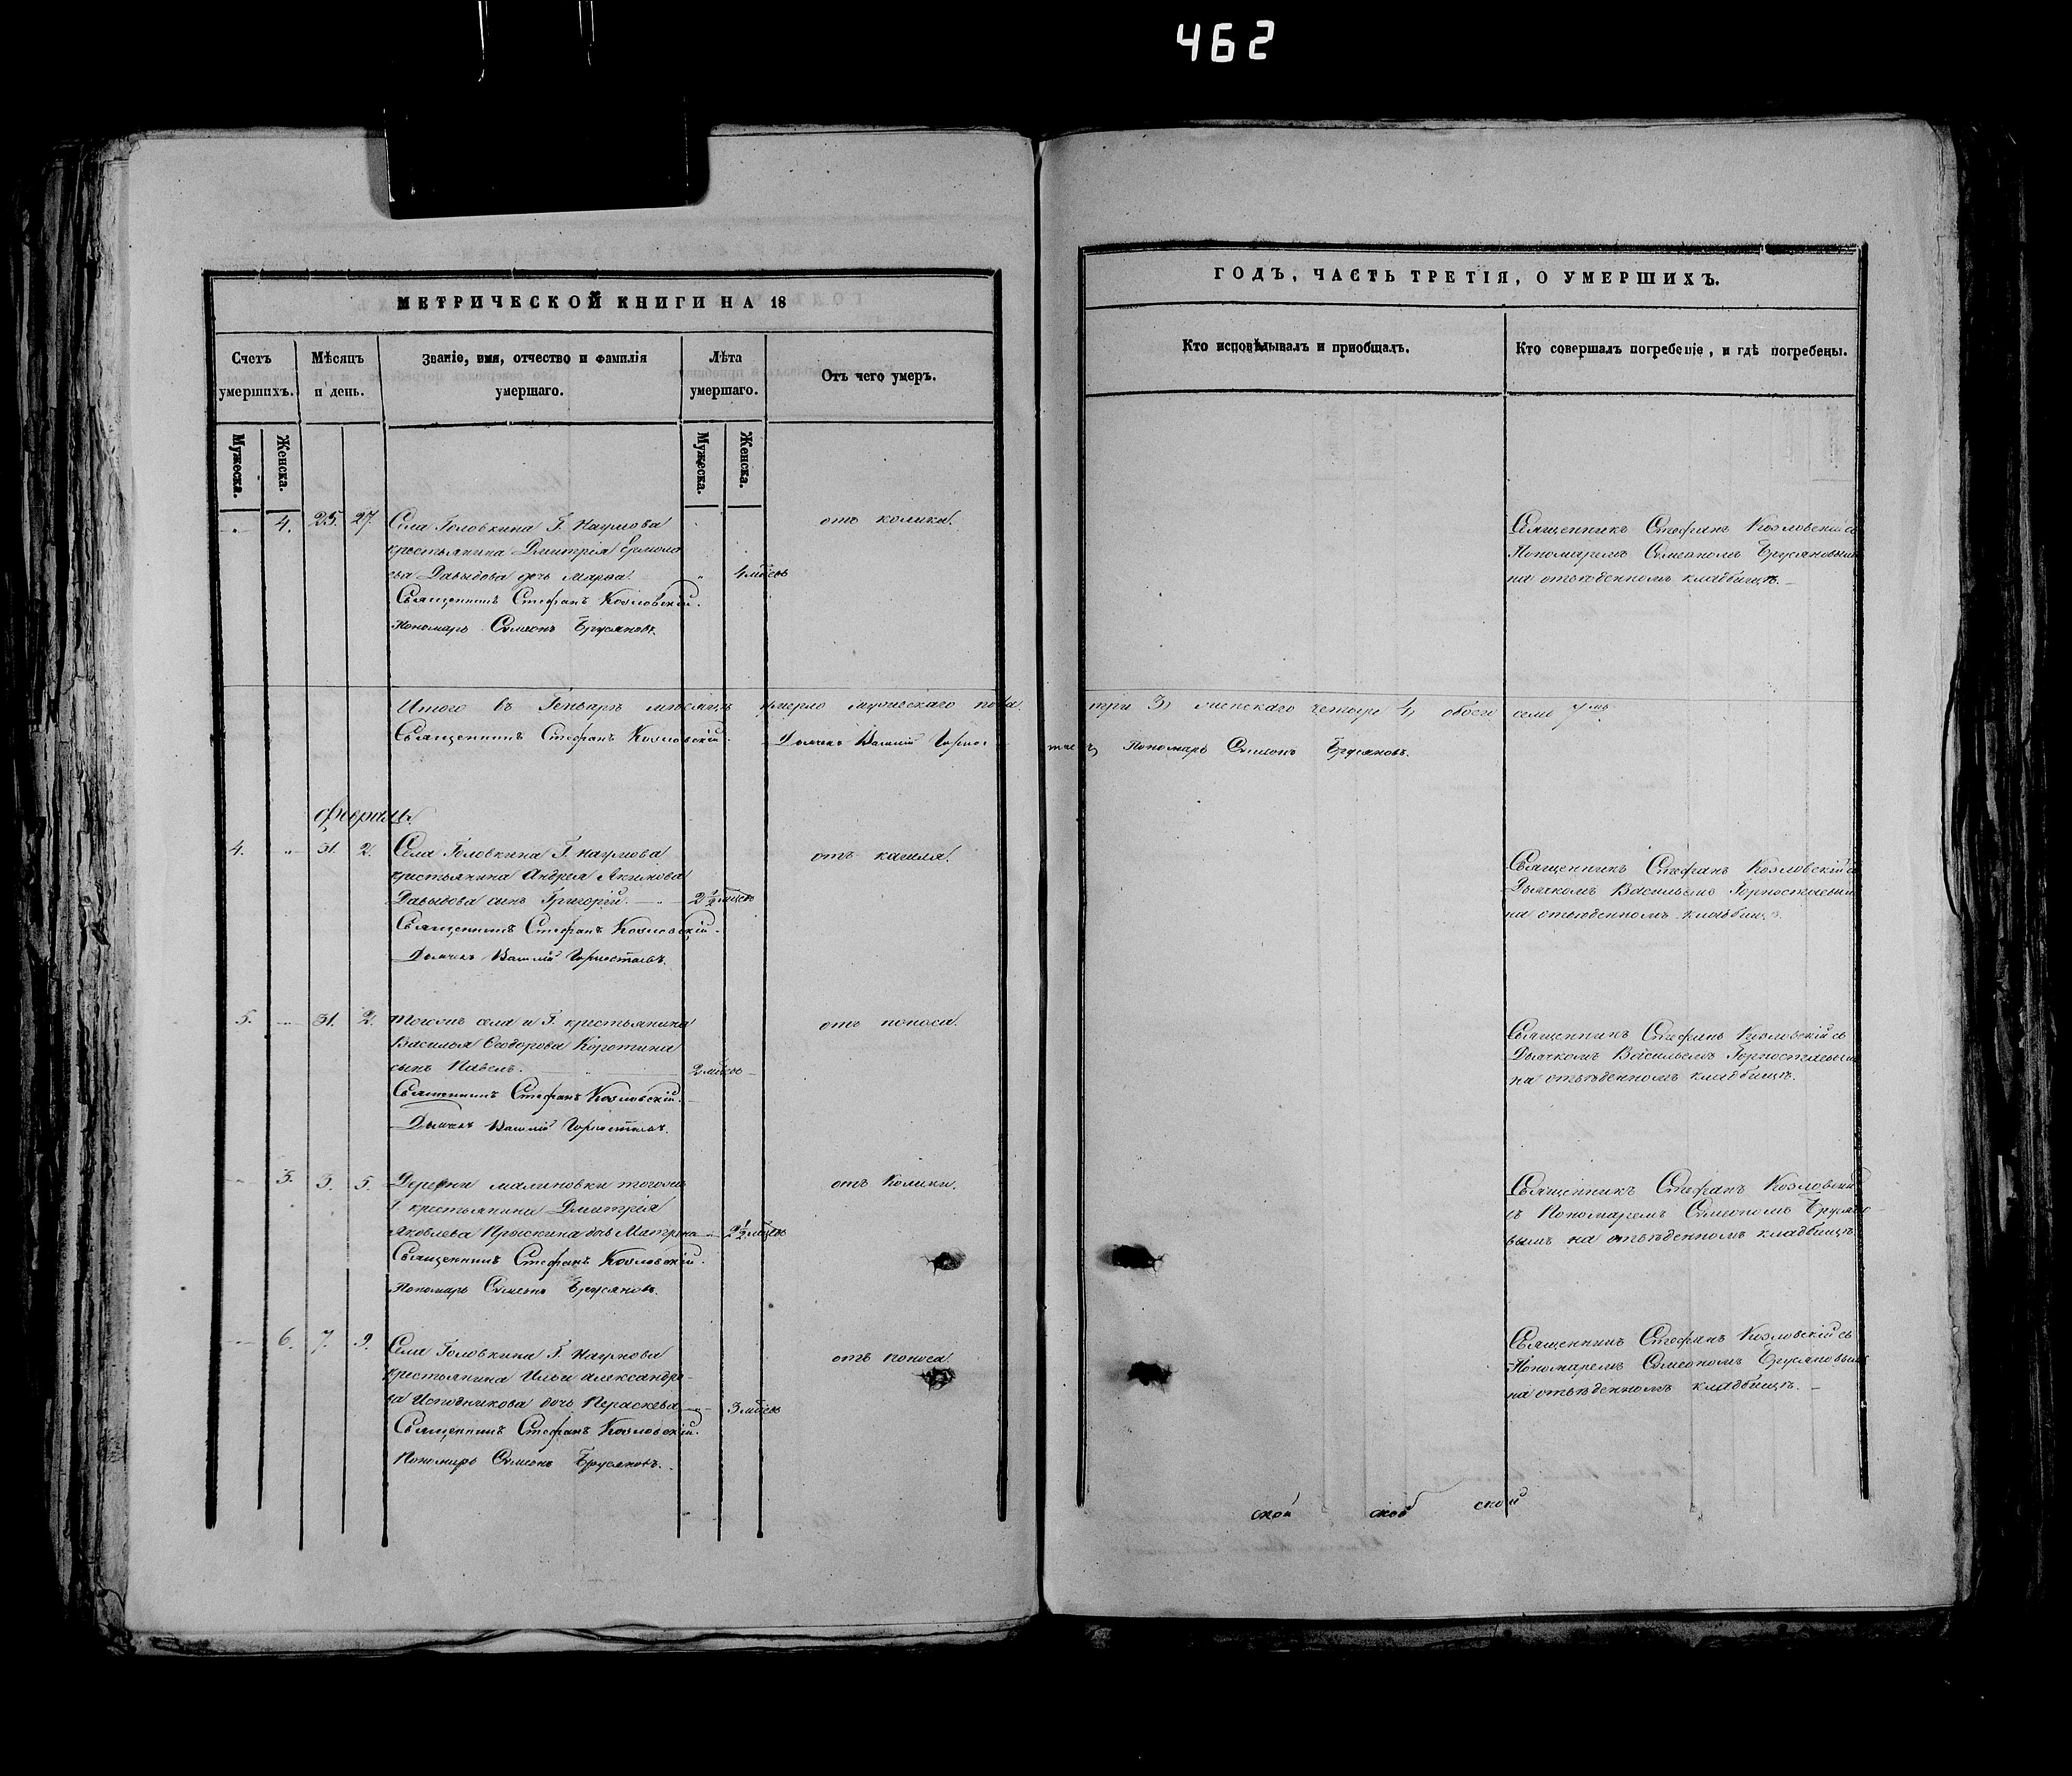 462
МЕТРИЧЕСКОЙ КНИГИ НА 18
Счетъ умершихъ.
Мѣсяцъ и день.
Званіе, имя, отчество и фамилія умершаго.
Лѣта умершаго.
Отъ чего умеръ.
Мужеска.
Женска.
Мужеска.
Женска.
4. 25. 27. Села Головкина Г. Наумова отъ колики.
крестьянина Дмитрія Ермоло
ева Давыдова дочь Марѳа. 4 мѣсяц
Священникъ Стефанъ Козловскій.
Пономарь Симеонъ Брусяновъ.
Итого въ Генварѣ мѣсяцѣ умерло мужескаго пола
Священникъ Стефанъ Козловскій. Дьячекъ Василій Горнос
февраль.
4. 31. 2. Села Головкина Г. Наумова отъ кашля.
крестьянина Андрея Акимова
Давыдова сынъ Григорій. 2 1/2 мѣсяц
Священникъ Стефанъ Козловскій.
Дьячекъ Василій Горностаевъ.
5. 31. 2. Тогожъ села и Г. крестьянина отъ поноса.
Василья Ѳеодорова Коротина
сынъ Павелъ. 2 мѣсяц
Священникъ Стефанъ Козловскій.
Дьячекъ Василій Горностаевъ.
5. 3. 5. Деревни Малиновки тогожъ отъ колики.
Г крестьянина Дмитрія
Яковлева Прыскина дочь Матрона 2 1/2 мѣсяц
Священникъ Стефанъ Козловскій.
Пономарь Симеонъ Брусяновъ.
6. 7. 9. Села Головкина Г. Наумова отъ поноса.
крестьянина Ильи Александро-
ва Исподникова дочь Параскева 3 мѣсяц
Священникъ Стефанъ Козловскій.
Пономарь Симеонъ Брусяновъ.
ГОДЪ, ЧАСТЬ ТРЕТІЯ, О УМЕРШИХЪ.
Кто исповѣдывалъ и приобщалъ.
Кто совершалъ погребеніе, и гдѣ погребены.
Священникъ Стефанъ Козловскій съ
Пономаремъ Симеономъ Брусяновымъ
на отведенномъ кладбищѣ.
три 3, женскаго четыре 4, обоего семь 7мь
таевъ Пономарь Симеонъ Брусяновъ.
Священникъ Стефанъ Козловскій съ
Дьячкомъ Васильемъ Горностаевымъ
на отведенномъ кладбищѣ.
Священникъ Стефанъ Козловскій съ
Дьячкомъ Васильемъ Горностаевымъ
на отведенномъ кладбищѣ.
Священникъ Стефанъ Козловскій
съ Пономаремъ Симеономъ Брусяно-
вымъ на отведенномъ кладбищѣ
Священникъ Стефанъ Козловскій съ
Пономаремъ Симеономъ Брусяновымъ
на отведенномъ кладбищѣ.
ской ской ской